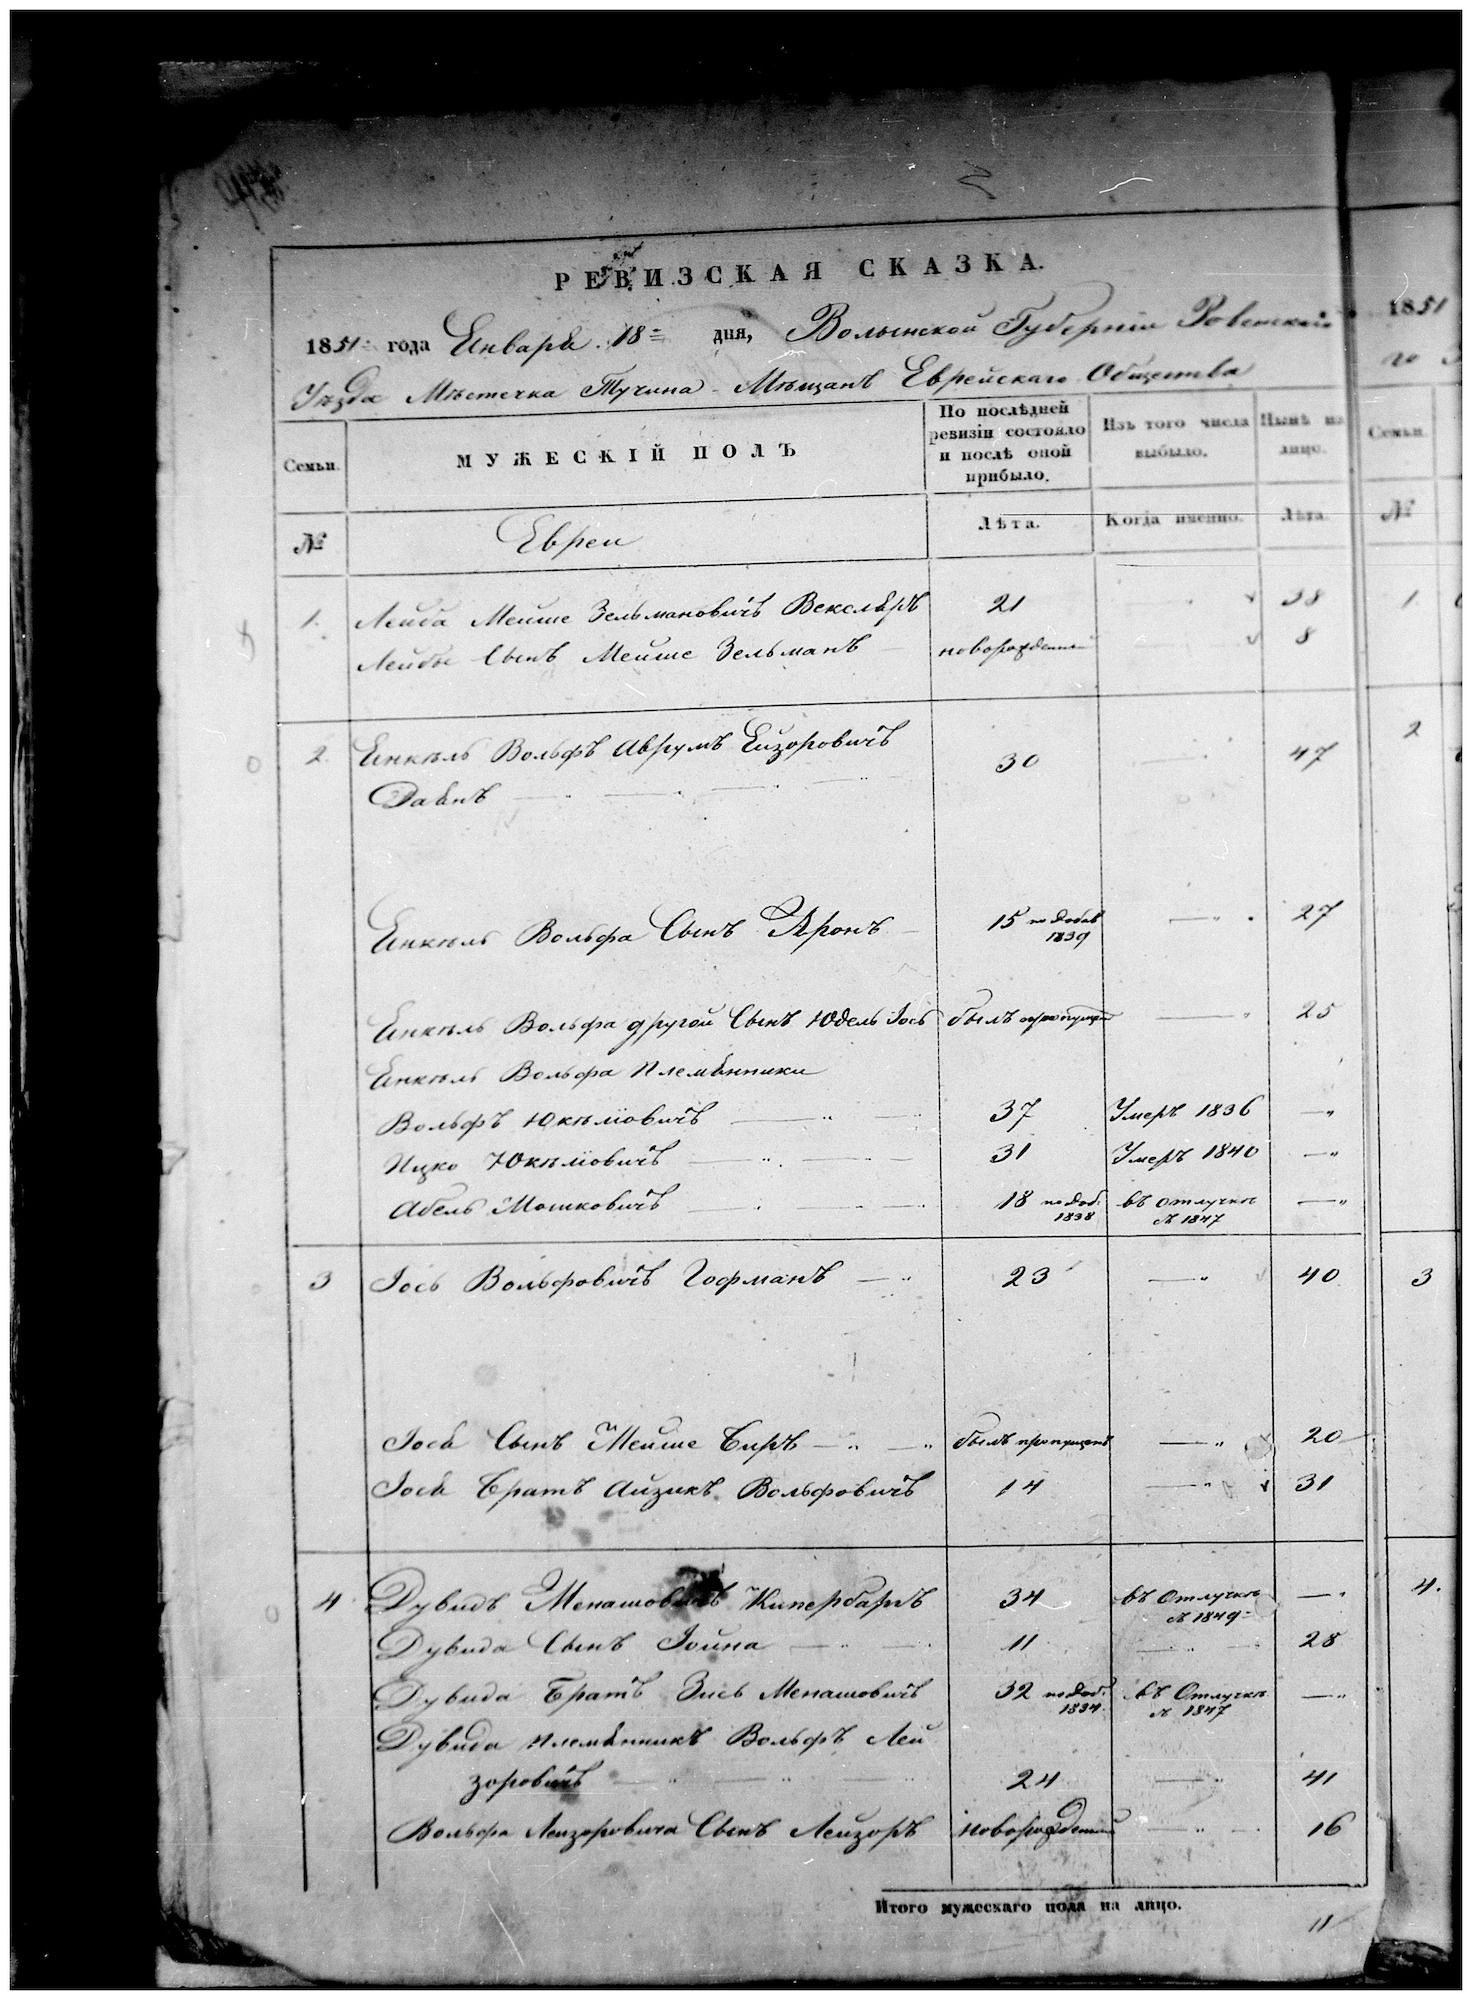 РЕВИЗСКАЯ СКАЗКА.
1851 года Енваря 18 дня, Волынской Губерніи Ровенскаго
Уѣзда Мѣстечка Тучина Мѣщанъ Еврейскаго Общества
Семьи.
МУЖЕСКІЙ ПОЛЪ
По послѣдней ревизіи состояло и послѣ оной прибыло.
Изъ того числа выбыло.
Нынѣ на лицо.
№
Евреи
Лѣта.
Когда именно.
Лѣта.
1. Лейба Мейше Зельмановичъ Векслѣръ 21 38
Лейбы Сынъ Мейше Зельманъ новорожденный 8
2. Енкѣль Вольфъ Аврумъ Ейзоровичъ 30 47
Енкѣль Вольфа Сынъ Аронъ 15 по добав 1839 27
Енкѣль Вольфа другой Сынъ Юдель Іось былъ пропущен 25
Енкѣль Вольфа Племѣнники
Вольфъ Юкѣліовичъ 37 Умеръ 1836
Ицко Юкѣліовичъ 31 Умеръ 1840
Абель Мошковичъ 18 по доб. 1838 въ отлучкѣ 1847
3 Іось Вольфовичъ Гофманъ 23 40
Іося Сынъ Мейше Биръ былъ пропущенъ 20
Іося Братъ Айзикъ Вольфовичъ 14 31
4 Дувидъ Менашовичъ Кипербаръ 34 въ Отлучкѣ 1849
Дувида Сынъ Іойна 11 28
Дувида Братъ Зись Менашовичъ 32 по доб. 1834 въ Отлучкѣ 1847
Дувида племѣнникъ Вольфъ Лей
зоровичъ 24 41
Вольфа Лейзоровича Сынъ Лейзоръ новорожденный 16
Итого мужескаго пола на лицо.
11
1851
Семьи.
№
1
2
3
4.